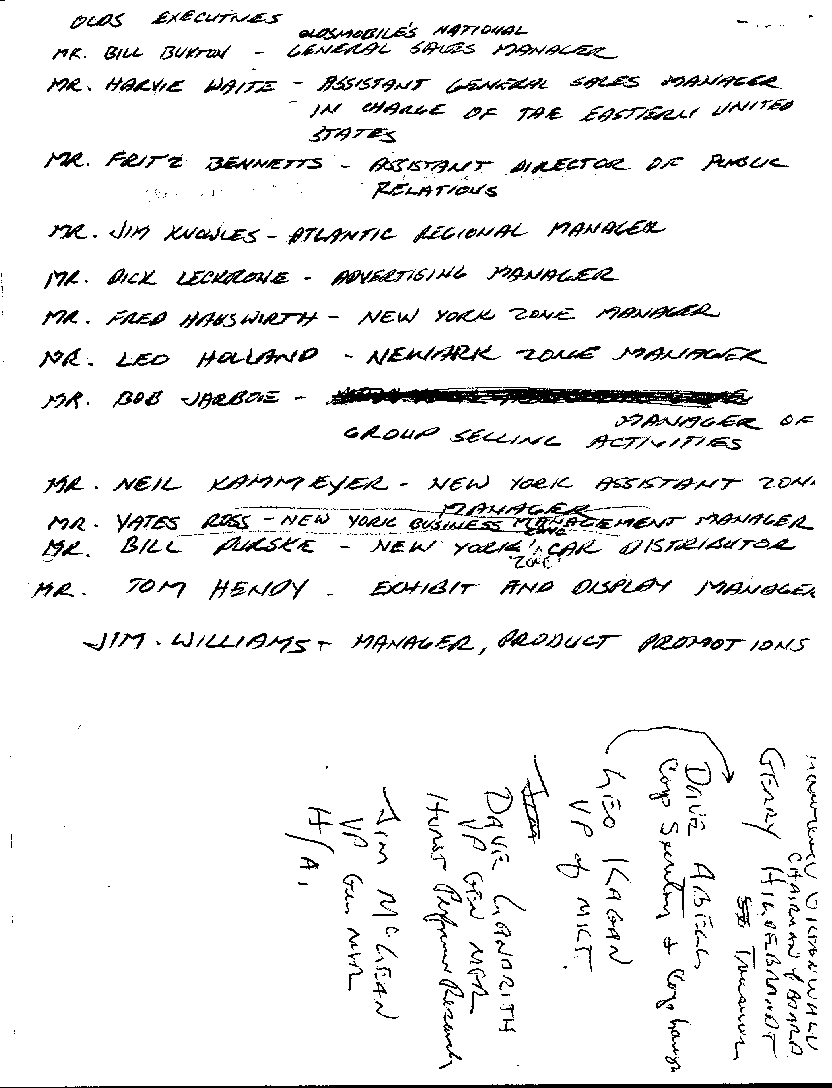 OLDS EXECUTIVES
OLDSMOBILE'S NATIONAL
MR. BILL BUXTON - GENERAL SALES MANAGER
MR. HARVIE WAITE - ASSISTANT GENERAL SALES MANAGER
IN CHARGE OF THE EASTERN UNITED
STATES
MR. FRITZ BENNETTS - ASSISTANT DIRECTOR OF PUBLIC
RELATIONS
MR. JIM KNOWLES - ATLANTIC REGIONAL MANAGER
MR. DICK LECKRONE - ADVERTISING MANAGER
MR. FRED HAUSWIRTH - NEW YORK ZONE MANAGER
MR. LEO HOLLAND - NEWARK ZONE MANAGER
MR. BOB JARBOE -
MANAGER OF
GROUP SELLING ACTIVITIES
MR. NEIL KAMMEYER - NEW YORK ASSISTANT ZONE
MANAGER
MR. YATES ROSS - NEW YORK BUSINESS MANAGEMENT MANAGER
MR. BILL PURSKE - NEW YORK CAR DISTRIBUTOR
ZONE
MR. TOM HENDY - EXHIBIT AND DISPLAY MANAGER
JIM WILLIAMS - MANAGER, PRODUCT PROMOTIONS
CHAIRMAN of BOARD
GERRY HILDEBRANDT
Treasurer
DAVE ABELL
Corp Secretary & Corp
LEO KAGAN
VP of MKT.
DAVE LANDRITH
VP GEN MGR
Hurst Performance Research
JIM McLEAN
VP Gen MGR
H/A.